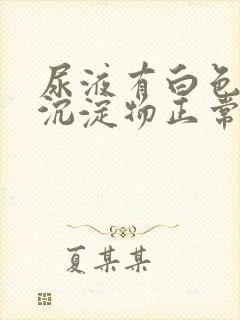 尿液有白色
沉淀物正常
夏某某